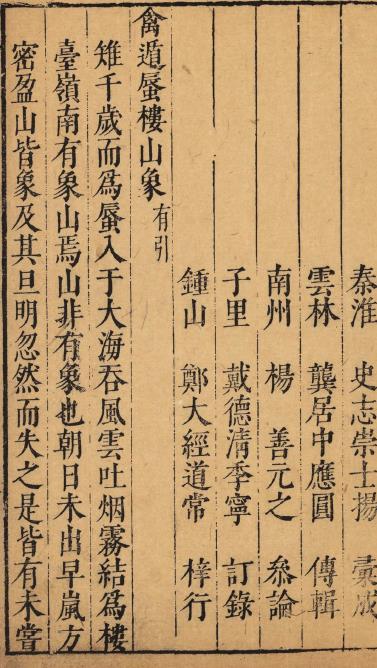 秦淮 史志崇士揚 彚成
雲林 龔居中應圓 傳輯
南州 楊 善元之 叅論
子里 戴德淸季寧 訂錄
鍾山 鄭大經道常 梓行
禽遁蜃樓山象有引
雉千歲而爲蜃入于大海吞風雲吐烟霧結爲樓
臺嶺南有象山焉山非有象也朝日未出早嵐方
密盈山皆象及其旦明忽然而失之是皆有未嘗